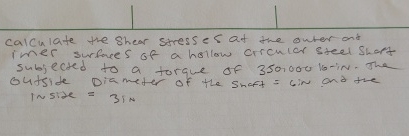 calculate the shear stresses at the outer and
inner surfaces of a hollow circular steel shaft
subjected to a torque of 350,000 lb-in. The
outside Diameter of the shaft = 6in and the
inside = 3in